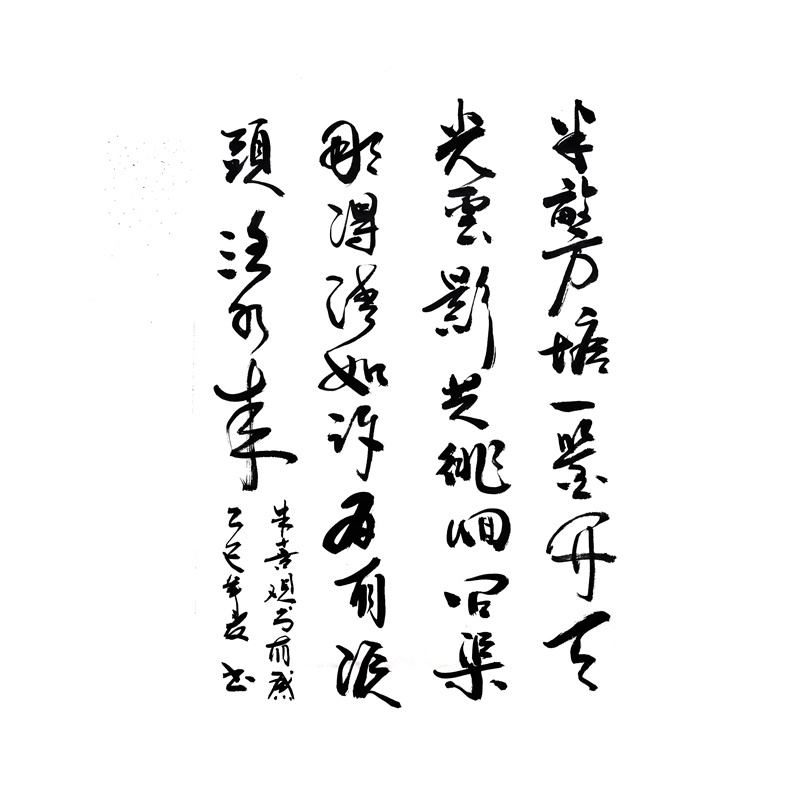 半畝方塘一鑒開天
光雲影共徘徊問渠
那得清如許为有源
頭活水来
朱熹观书有感
乙巳年夏书